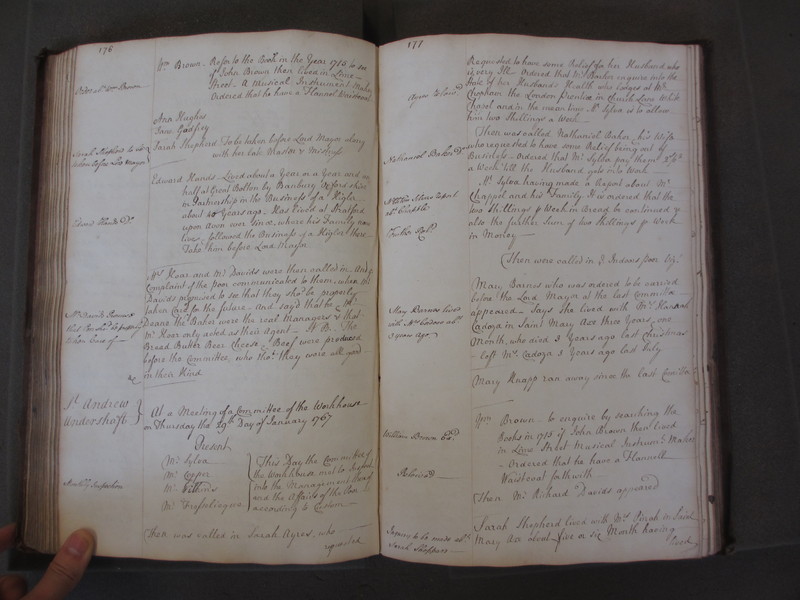 176
Order abt. Wm Brown
Wm. Brown. Refer to the Book in the Year 1715 to see
if John Brown then lived in Lime
Street. A Musical Instrument Maker
Ordered that he have a Flannel Waistcoat
Ann Hughes
Jane Godfrey
Sarah Shepherd to be
taken before Ld Mayor
Sarah Shepherd To be taken before Lord Mayor along
with her late Master & Mistress
Edward Hands
Edward Hands - Lived about a Year or a Year and a
half at Great Bolton by Banbury Oxfordshire
in Partnership in the Business of a Higler
about 40 Years ago. Has lived at Stratford
upon Avon ever since where his Family now
live, & followed the Business of a Higler there
Take him before Lord Mayor
Mr. Hoar and Mr. Davids were then called in And
Complaint of the poor communicated to them, when Mr.
Davids promised to see that they shod. be properly
taken Care for the future - And sayd that he & Mr.
Deane the Baker were the real Managers & that
Mr. Hoar only acted as their Agent - N B. The
Bread Butter Beer Cheese & Beef were produced
before the Committee, who thot. they were all good
in their Kind
Mr Davids Promises
that Poor shd. be properly
taken Care of
St. Andrew
Undershaft
At a Meeting of a Committee of the Workhouse
on Thursday the 29th Day of January 1767
Present
Monthly Inspection
Mr. Sylva
Mr. Cooper
Mr.
Mr.
This Day the Committee of
the Workhouse met to Inspect
into the Management thereof
and the Affairs of the Poor
according to Custom
Then was called in Sarah Ayres, who
requested
177
Requested to have some Relief for her Husband who
is very Ill. Ordered that Mr. Barker enquire into the
State of her Husbands Health who lodges at Mr.
Chapham the London Prentice in Church Lane White
Chapel and in the mean time Mr. Sylva is to allow
him two Shillings a Week
Nathaniel Baker
Then was called Nathaniel Baker, his Wife
who requested to have some Relief being out of
Business - Ordered that Mr. Sylva pay them
a Week till the Husband gets into Work
Mr. Sylva having made a Report about Mr.
Chappel and his Family It is ordered that the
two Shillings p Week in Bread be continued &
also the further Sum of two Shillings p Week
in Money
Further
Then were called in Indoors poor
Mary Barnes lived
with Mrs Cadoza abt.
3 years ago
Mary Barnes who was ordered to be carried
before the Lord Mayor at the last Committee
appeared. Says she lived with Mr.
Cadoza in Saint Mary Axe three Years, one
Month, who died 3 Years ago last Christmas
- left Mrs. Cadoza 3 Years ago last July
Mary Knapp ran away since the last Committee
William Brown
Wm. Brown - to enquire by searching the
Books in 1715 if John Brown then lived
in Lime Street Musical Instrumt. Maker
- Ordered that he have a Flannell
Waistcoat forthwith
Then Mr. Richard Davids appeared
Inquiry to be made abt.
Sarah Sheppard
Sarah Shepherd lived with Mrs. in Saint
Mary Axe about five or six Month having
lived